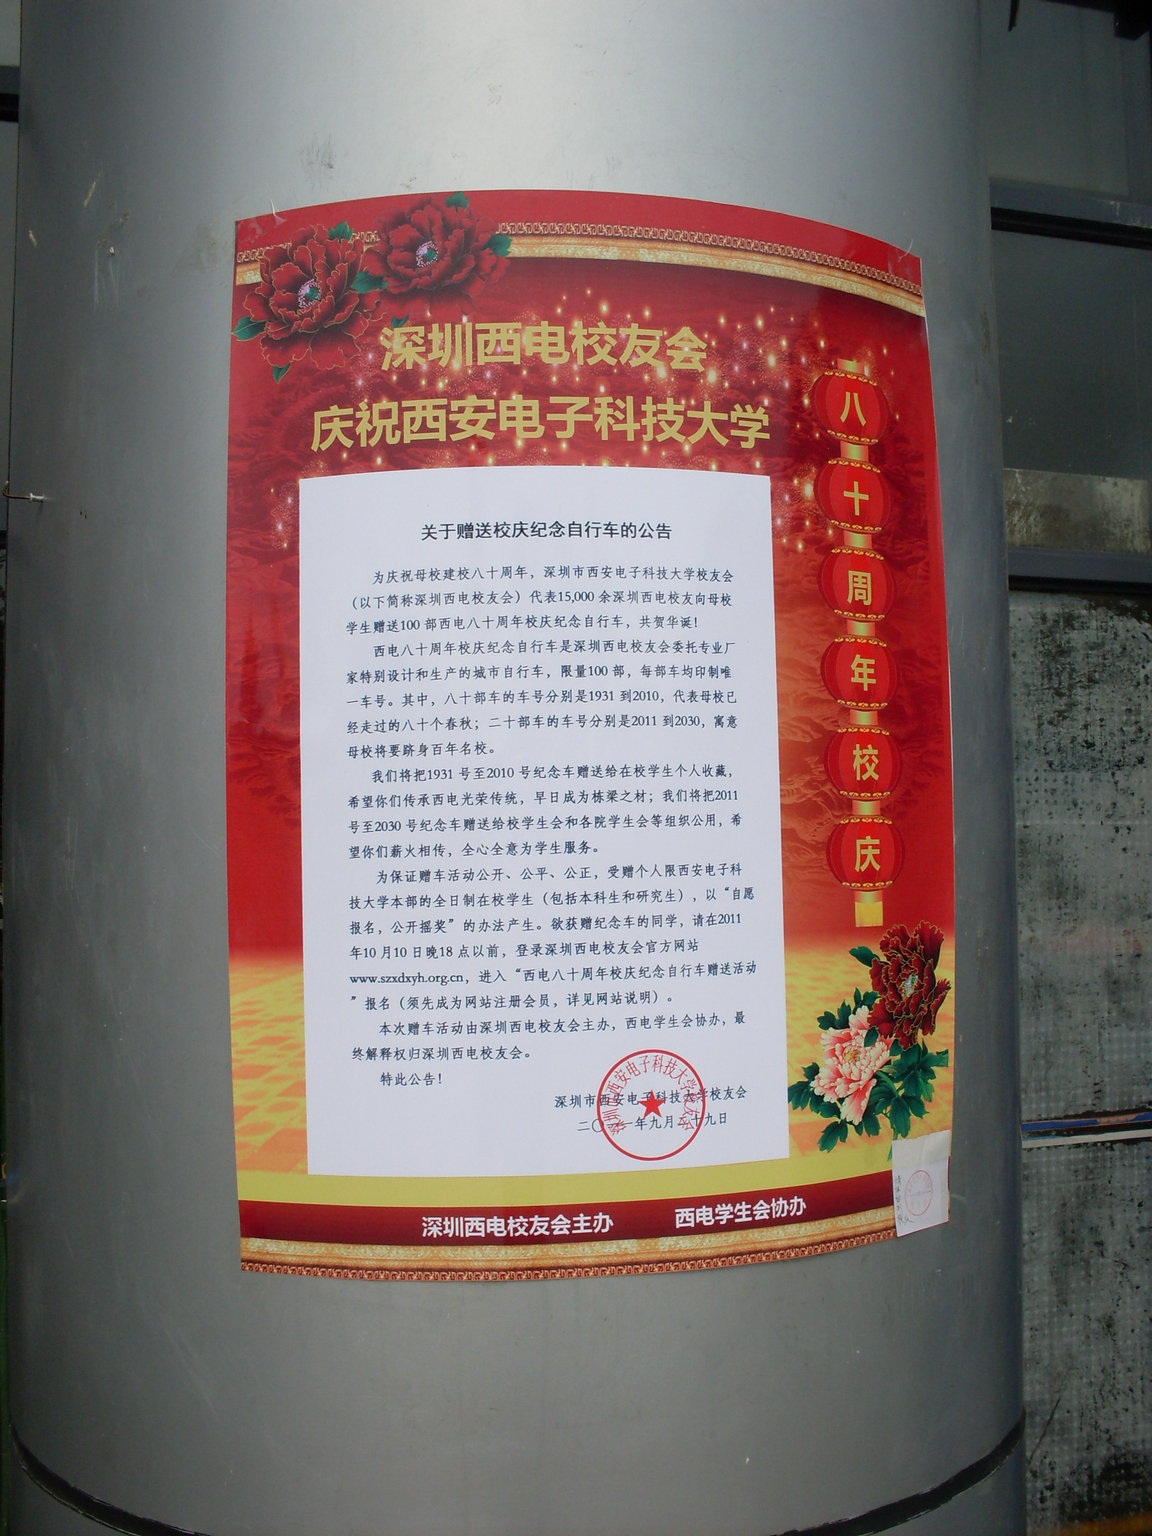 深圳西电校友会
庆祝西安电子科技大学
八十周年校庆
关于赠送校庆纪念自行车的公告
为庆祝母校建校八十周年，深圳市西安电子科技大学校友会
（以下简称深圳西电校友会）代表15,000 余深圳西电校友向母校
学生赠送100 部西电八十周年校庆纪念自行车，共贺华诞！
西电八十周年校庆纪念自行车是深圳西电校友会委托专业厂
家特别设计和生产的城市自行车，限量100 部，每部车均印制唯
一车号。其中，八十部车的车号分别是1931 到2010，代表母校已
经走过的八十个春秋；二十部车的车号分别是2011 到2030，寓意
母校将要跻身百年名校。
我们将把1931 号至2010 号纪念车赠送给在校学生个人收藏，
希望你们传承西电光荣传统，早日成为栋梁之材；我们将把2011
号至2030 号纪念车赠送给校学生会和各院学生会等组织公用，希
望你们薪火相传，全心全意为学生服务。
为保证赠车活动公开、公平、公正，受赠个人限西安电子科
技大学本部的全日制在校学生（包括本科生和研究生），以“自愿
报名，公开摇奖”的办法产生。欲获赠纪念车的同学，请在2011
年10 月10 日晚18 点以前，登录深圳西电校友会官方网站
www.szxdxyh.org.cn，进入“西电八十周年校庆纪念自行车赠送活动
”报名（须先成为网站注册会员，详见网站说明）。
本次赠车活动由深圳西电校友会主办，西电学生会协办，最
终解释权归深圳西电校友会。
特此公告！
深圳市西安电子科技大学校友会
二〇一一年九月二十九日
深圳市西安电子科技大学校友会
深圳西电校友会主办 西电学生会协办